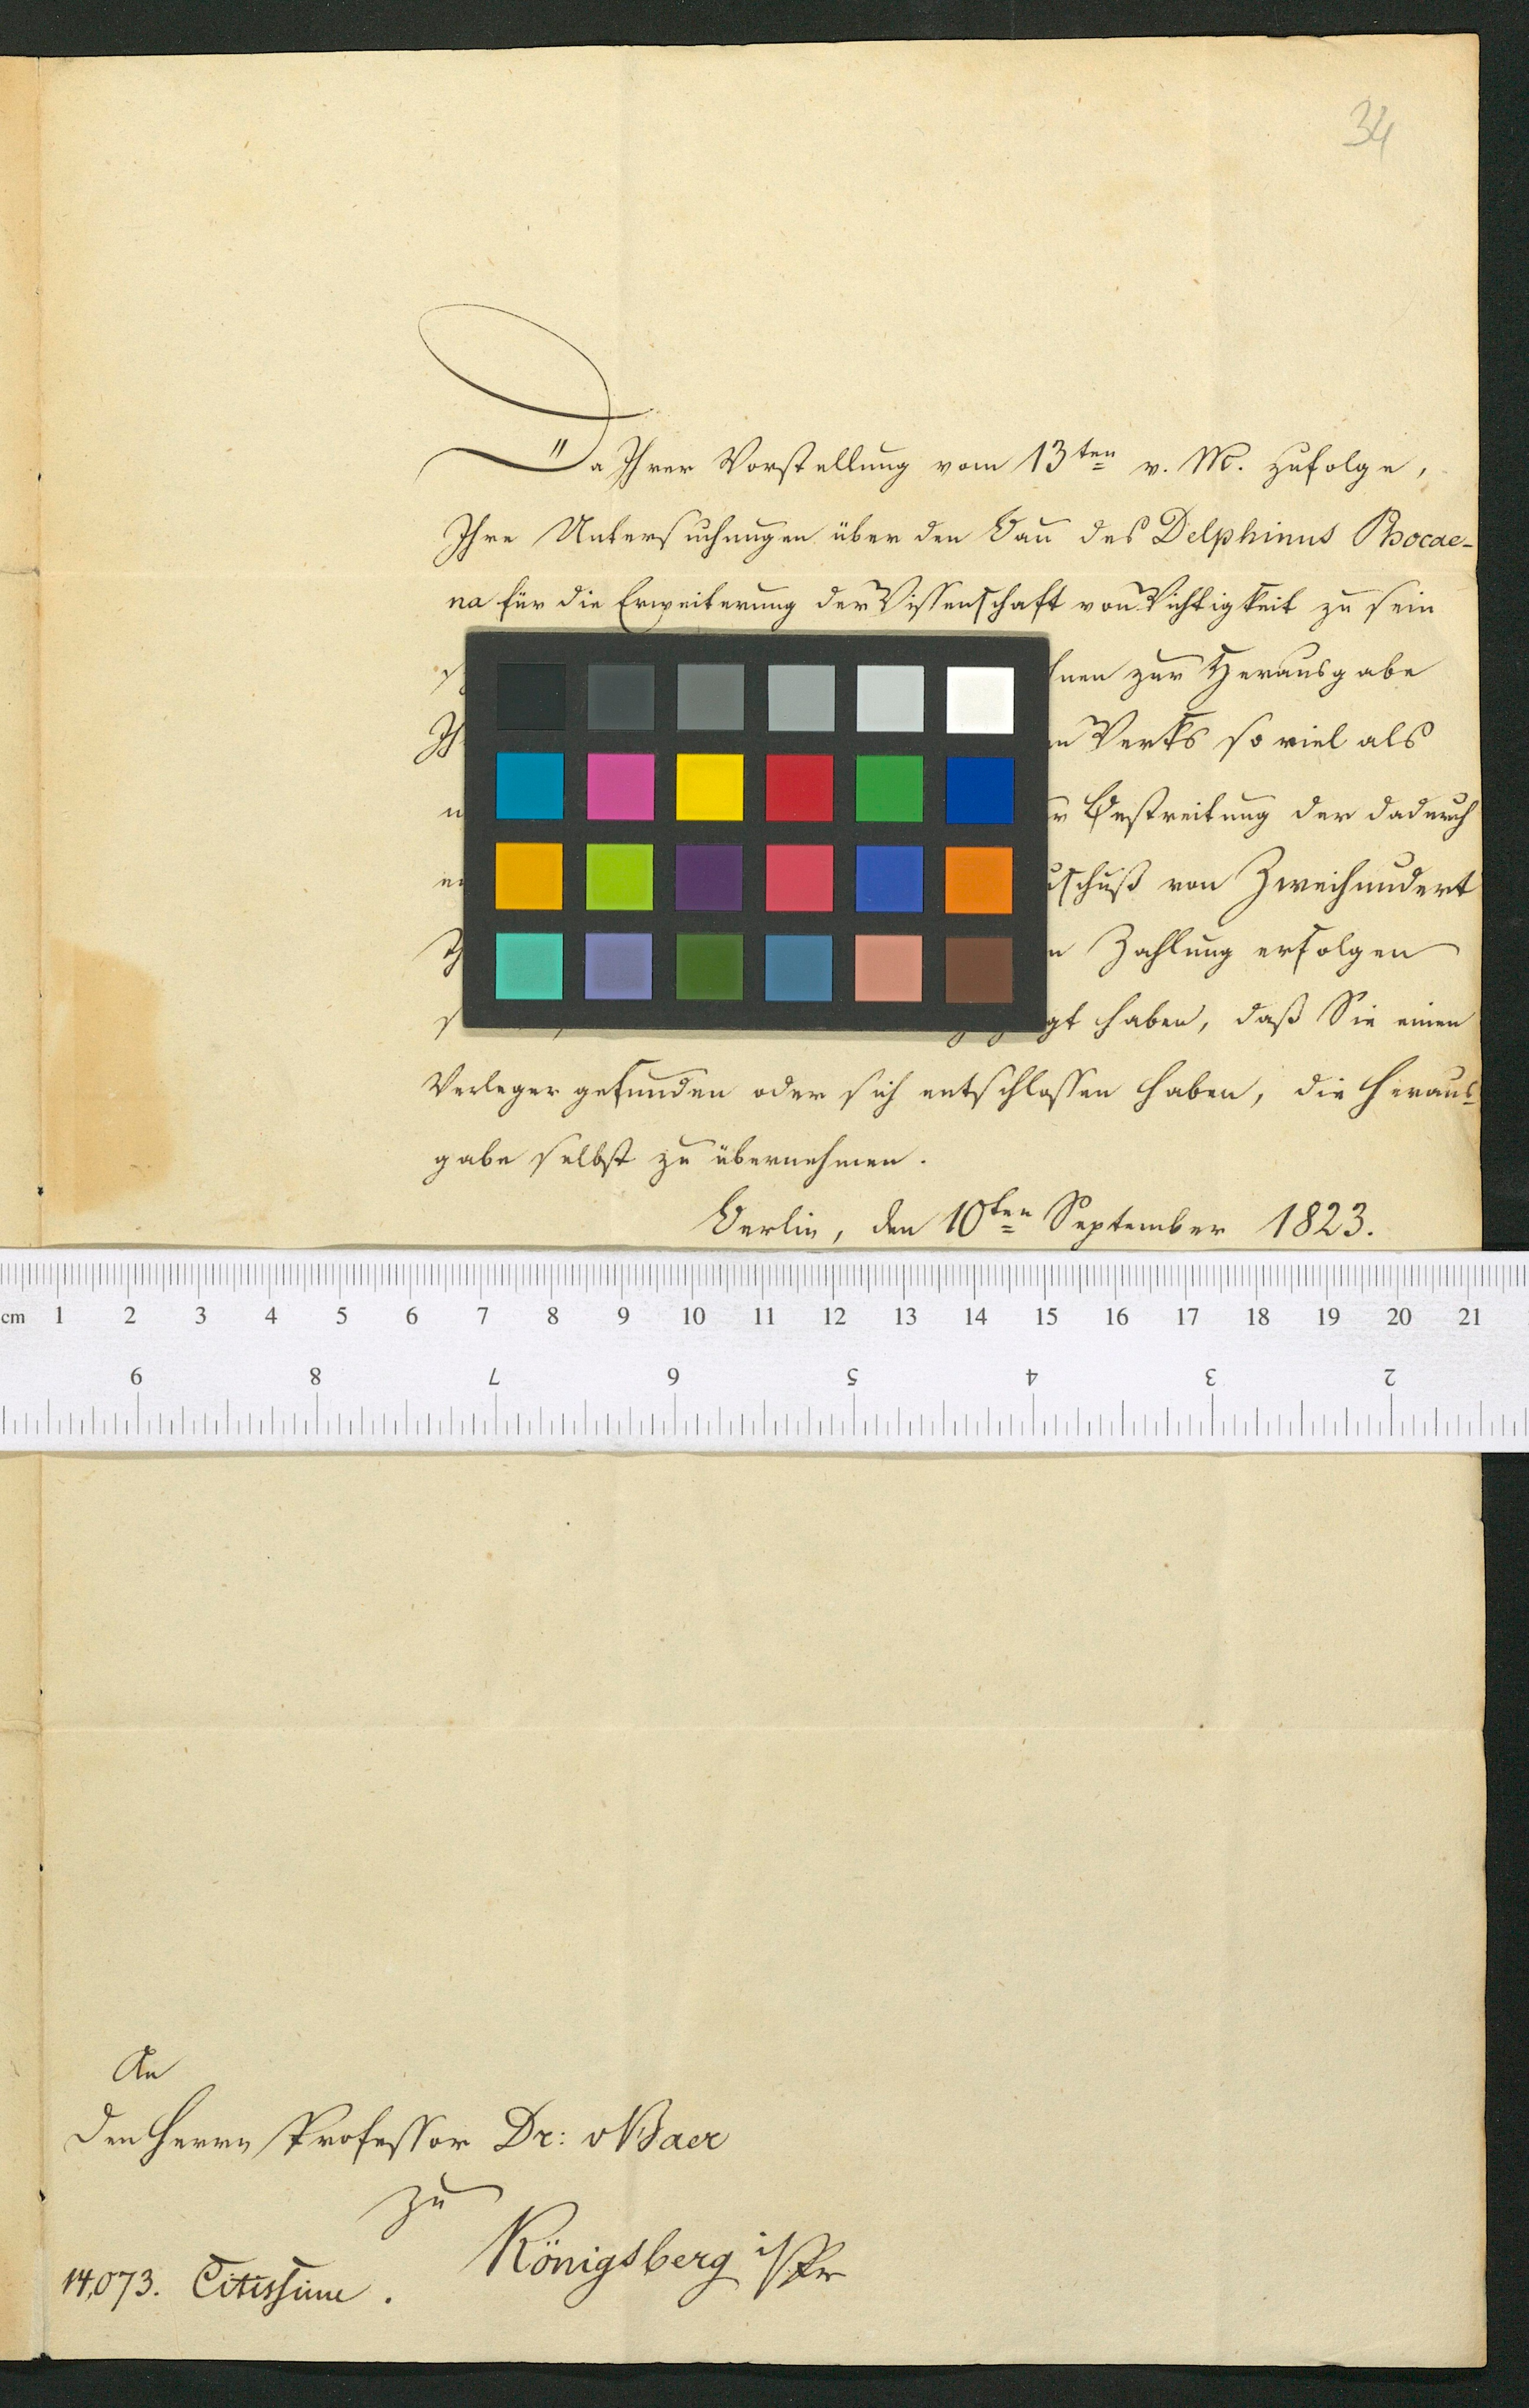 34
Da Ihrer Vorstellung vom 13ten v. M. zufolge,
Ihre Untersuchungen über den Bau des Delphinus Phocae-
na für die Erweiterung der Wissenschaft von Wichtigkeit zu sein
hnen zur Herausgabe
Werks so viel als
Bestreitung der dadurch
schuß von Zweihundert
Zahlung erfolgen
gt haben, daß Sie einen
Verleger gefunden oder sich entschlossen haben, die Heraus-
gabe selbst zu übernehmen.
Berlin, den 10ten September 1823.
cm 1 2 3 4 5 6 7 8 9 10 11 12 13 14 15 16 17 18 19 20 21
9 8 7 6 5 4 3 2
An
den Herrn Professor Dr: v Baer
zu
Königsberg i/Pr
14,073. Citissime.